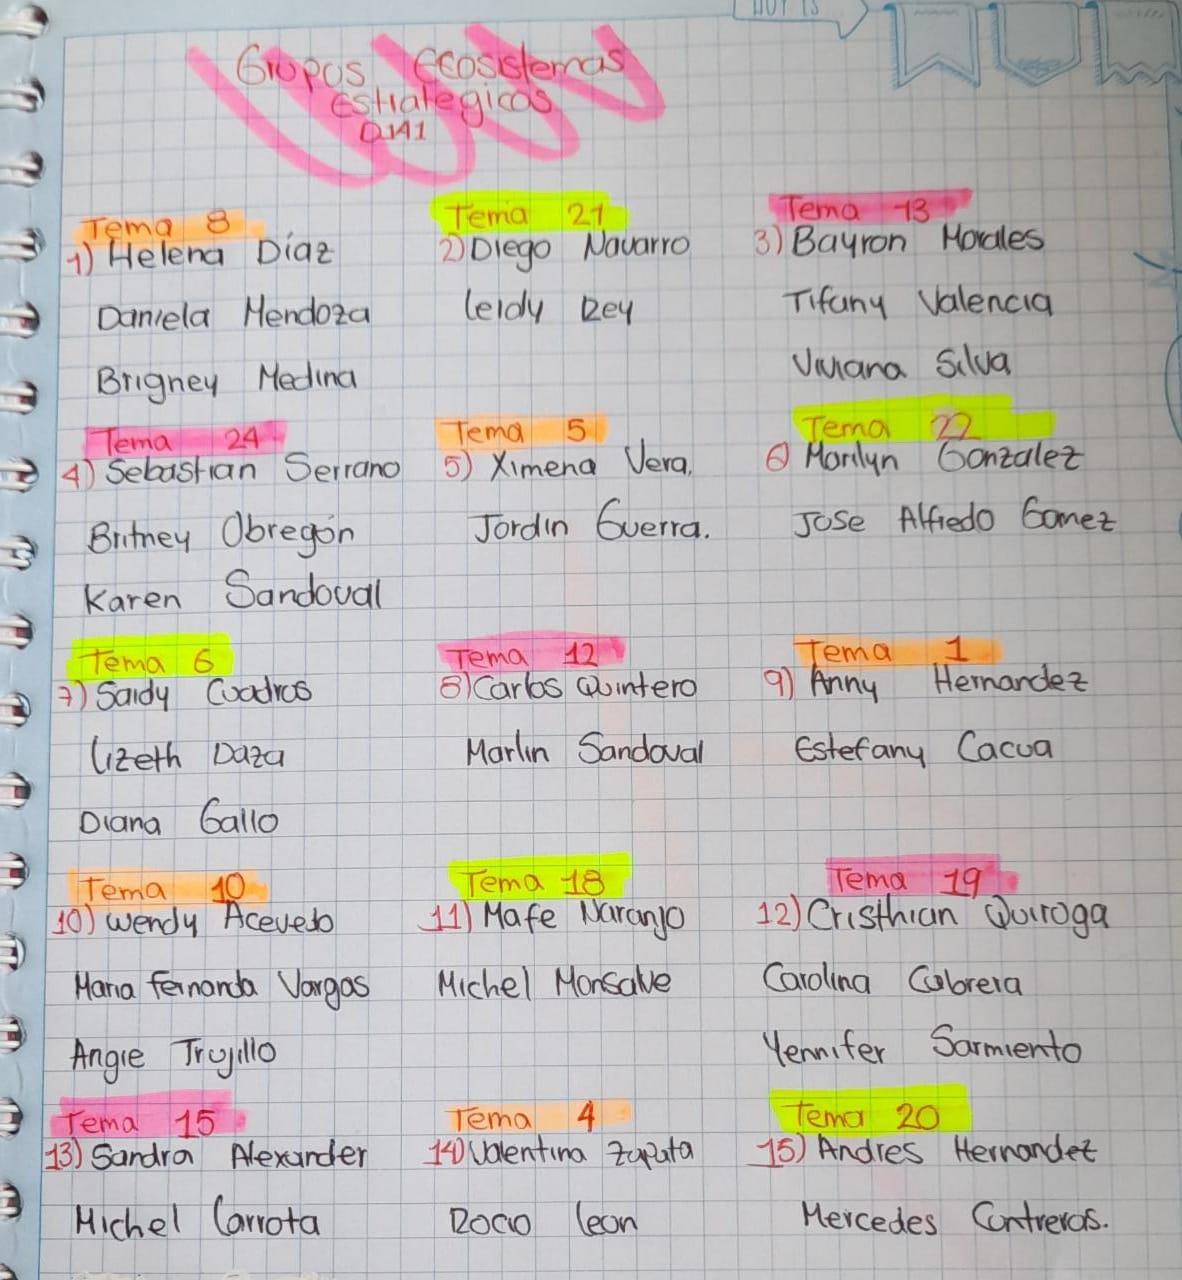 HOY IS
Grupos Ecosistemas
Estrategicos
DJA1
Tema 8
1) Helena Díaz
Daniela Mendoza
Brigney Medina
Tema 21
2) Diego Navarro
Leidy Rey
Tema 13
3) Bayron Morales
Tifany Valencia
Viviana Silva
Tema 24
4) Sebastian Serrano
Britney Obregón
Karen Sandoval
Tema 5
5) Ximena Vera.
Jordin Guerra.
Tema 22
6) Marilyn Gonzalez
Jose Alfredo Gomez
Tema 6
7) Saidy Cuadros
Lizeth Daza
Diana Gallo
Tema 12
8) Carlos Quintero
Marlin Sandoval
Tema 1
9) Anny Hernandez
Estefany Cacua
Tema 10
10) Wendy Acevedo
Maria Fernanda Vargas
Angie Trujillo
Tema 18
11) Mafe Naranjo
Michel Monsalve
Tema 19
12) Cristhian Quiroga
Carolina Cabrera
Yennifer Sarmiento
Tema 15
13) Sandra Alexander
Michel Carrota
Tema 4
14) Valentina Zapata
Rocio Leon
Tema 20
15) Andres Hernandez
Mercedes Contreras.